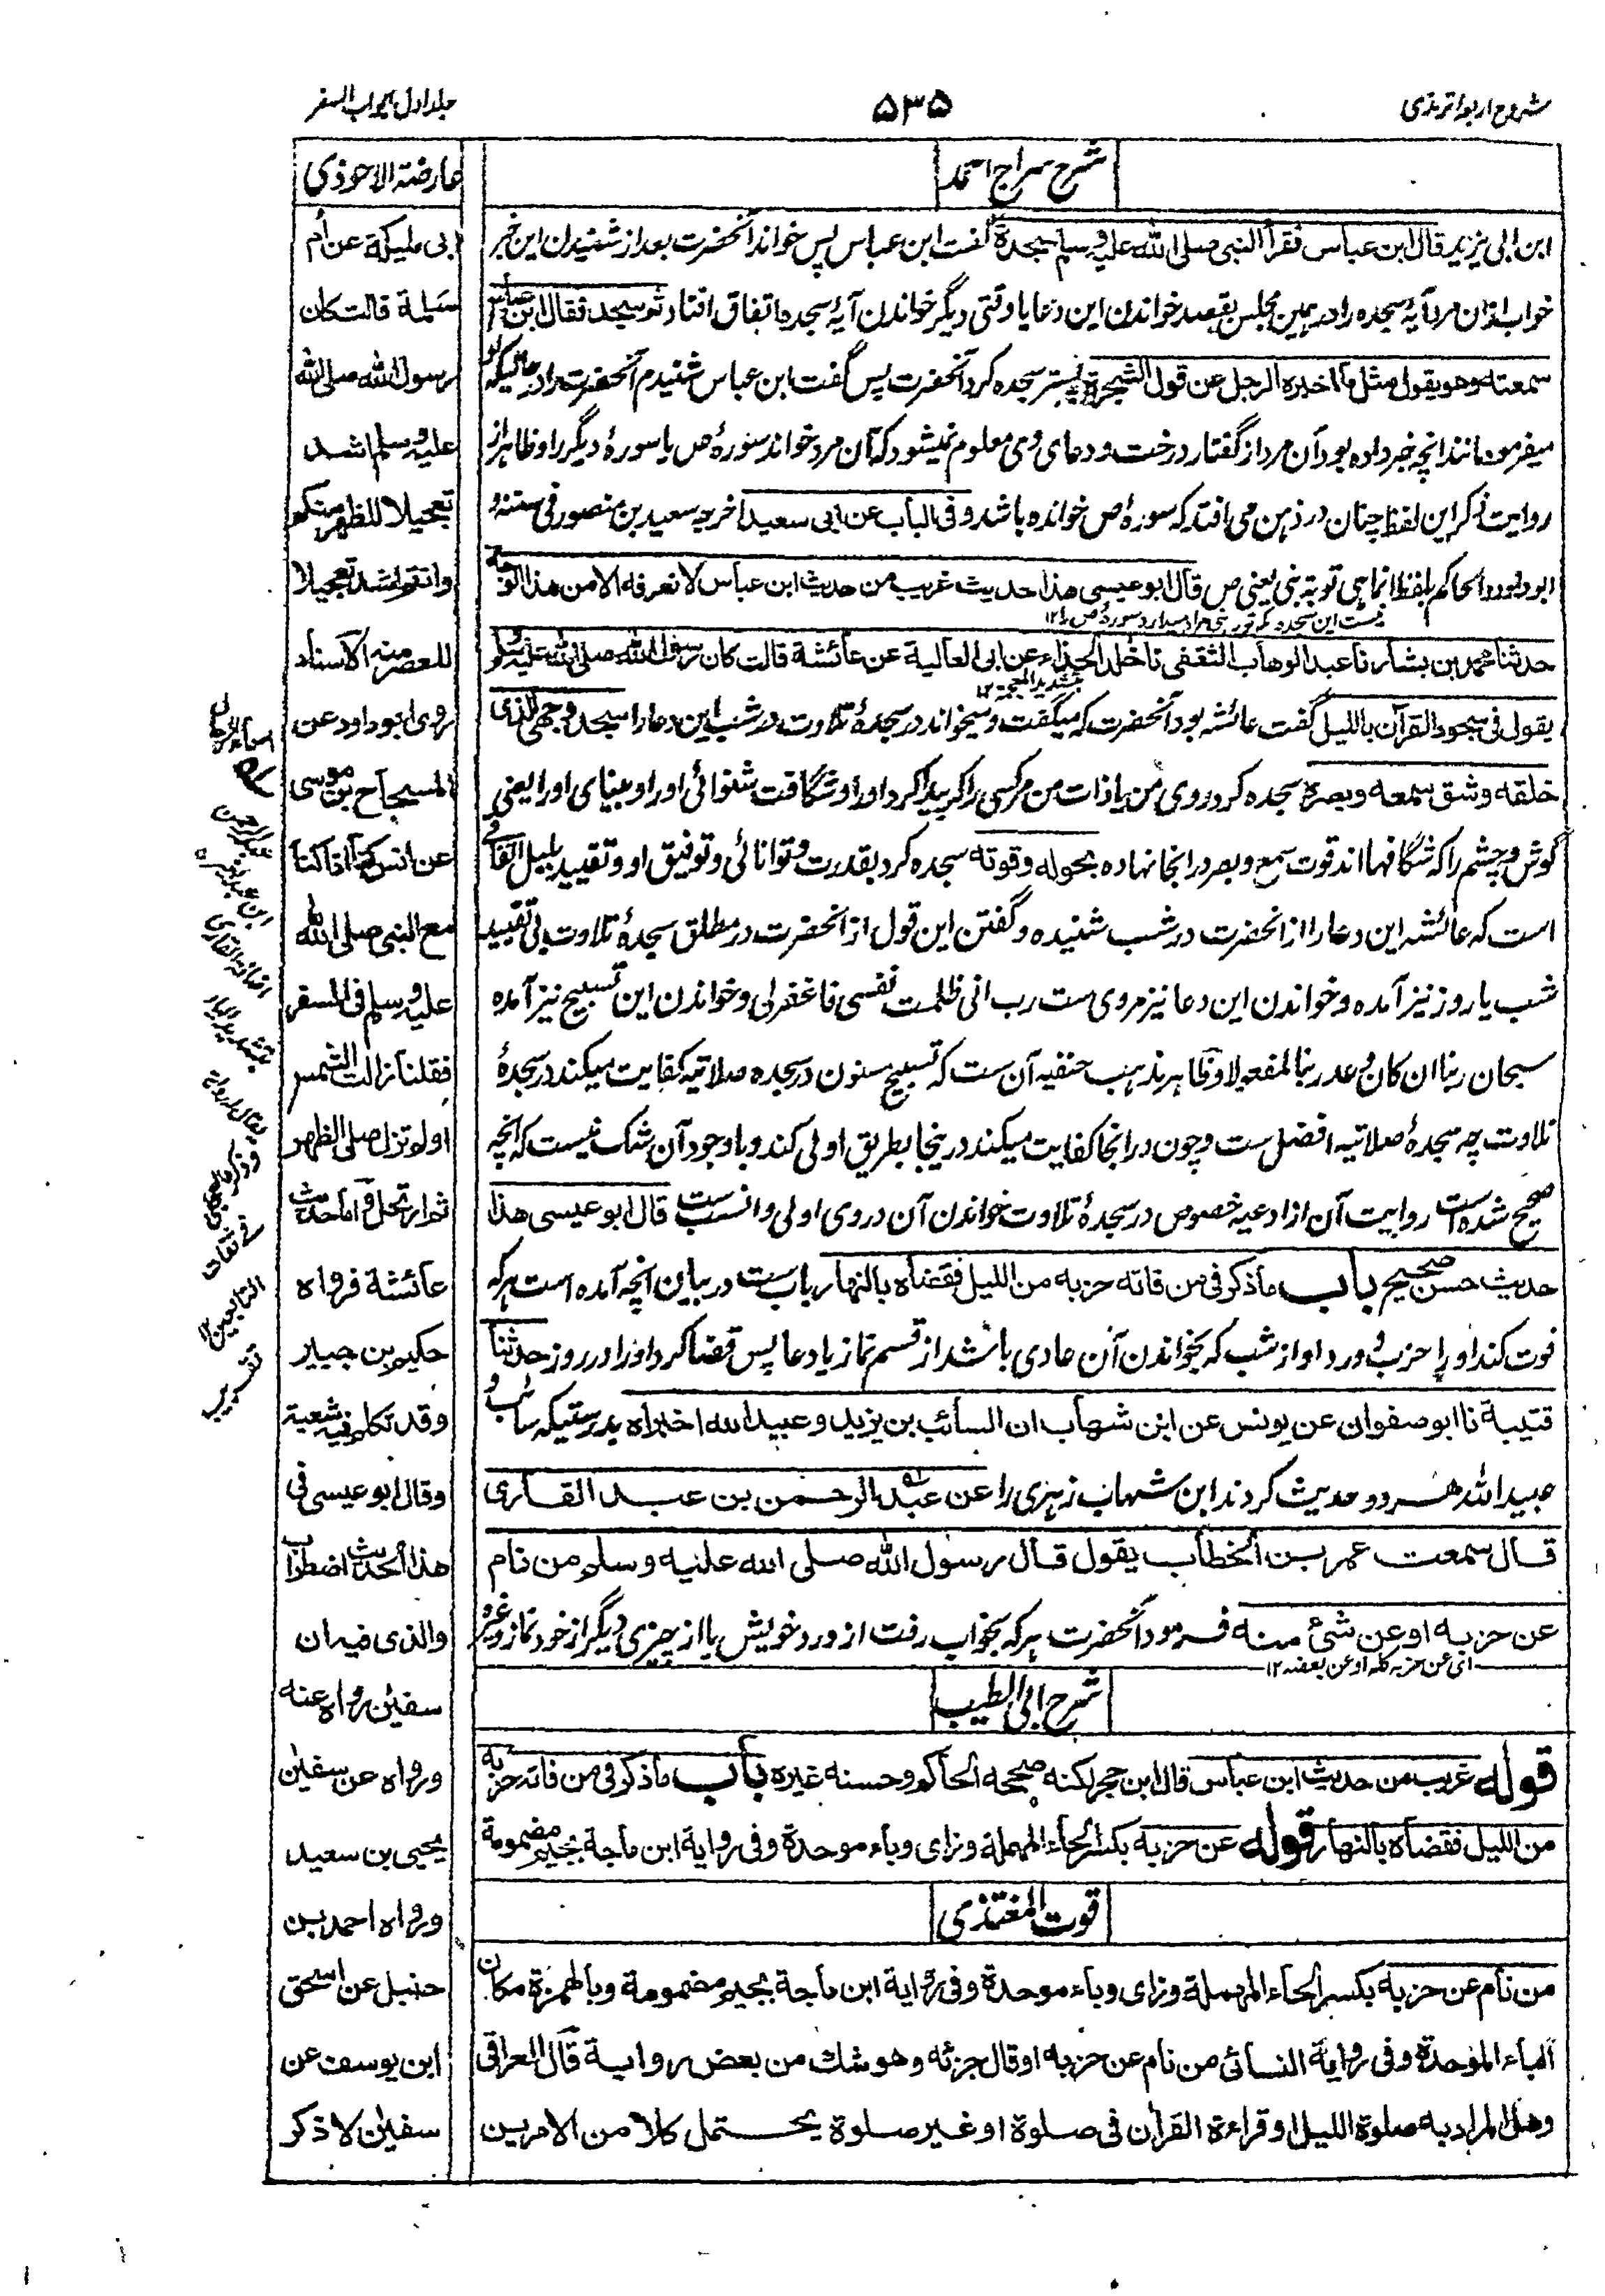 شروح اربعه ترمذی
۵۳۵
جلد اول ابواب السفر
شرح سراج احمد
ابن ابی یزید قال ابن عباس فقرأ النبی صلی الله علیه وسلم سجدة گفت ابن عباس پس خواند آنحضرت بعد از شنیدن این خبر
خواب ازان مرد آیهٔ سجده را در همین مجلس بقصد خواندن این دعا یا وقتی دیگر خواندن آیهٔ سجده اتفاق افتاد ثم سجد فقال ابن عباس
سمعته وهو یقول مثل ما اخبره الرجل عن قول الشجرة پستر سجده کرد آنحضرت پس گفت ابن عباس شنیدم آنحضرت را در حالیکه او
میفرمود مانند آنچه خبر داده بود آن مرد از گفتار درخت و دعای وی معلوم نمیشود که آن مرد خواند سورهٔ ص یا سورهٔ دیگر را و ظاهر از
روایت ذکر این لفظ چنان در ذهن می افتد که سورهٔ ص خوانده باشد وفی الباب عن ابی سعید اخرجه سعید بن منصور فی سننه و
ابوداود والحاکم بلفظ انما هی توبة نبی یعنی ص قال ابوعیسی هذا حدیث غریب من حدیث ابن عباس لا نعرفه الا من هذا الوجه
نیست این سجده مگر توبه نبی مراد میدارد سورهٔ ص را ۱۲
حدثنا محمد بن بشار نا عبد الوهاب الثقفی نا خالد الحذاء عن ابی العالیة عن عائشة قالت کان رسول الله صلی الله علیه وسلم
بتشدید المعجمة ۱۲
یقول فی سجود القرآن باللیل گفت عائشه بود آنحضرت که میگفت و میخواند در سجدهٔ تلاوت در شب این دعا را سجد وجهی للذی
خلقه وشق سمعه وبصره سجده کرد روی من یا ذات من مر کسی را که پیدا کرد او را و شگافت شنوائی او را و بینای او را یعنی
گوش و چشم را که شگافها اند قوت سمع و بصر در انجا نهاده بحوله وقوته سجده کرد بقدرت و توانائی و توفیق او و تقیید بلیل اتفاقی
است که عائشه این دعا را از آنحضرت در شب شنیده و گفتن این قول از آنحضرت در مطلق سجدهٔ تلاوت بی تقیید
شب یا روز نیز آمده و خواندن این دعا نیز مروی ست رب انی ظلمت نفسی فاغفرلی و خواندن این تسبیح نیز آمده
سبحان ربنا ان کان وعد ربنا لمفعولا و ظاهر مذهب حنفیه آن ست که تسبیح مسنون در سجده صلاتیه کفایت میکند در سجدهٔ
تلاوت چه سجدهٔ صلاتیه افضل ست و چون در انجا کفایت میکند درینجا بطریق اولی کند و با وجود آن شک نیست که آنچه
صحیح شده است روایت آن از ادعیه خصوص در سجدهٔ تلاوت خواندن آن در وی اولی و انسب ست قال ابوعیسی هذا
حدیث حسن صحیح باب ما ذکر فی من فاته حزبه من اللیل فقضاه بالنهار باب ست در بیان آنچه آمده است هر که
فوت کند او را حزب و ورد او از شب که بخواندن آن عادی باشد از قسم نماز یا دعا پس قضا کرد او را در روز حدثنا
قتیبة نا ابو صفوان عن یونس عن ابن شهاب ان السائب بن یزید وعبید الله اخبراه بدرستیکه سائب و
عبید الله هر دو حدیث کردند ابن شهاب زهری را عن عبد الرحمن بن عبد القاری
قال سمعت عمر بن الخطاب یقول قال رسول الله صلی الله علیه وسلم من نام
عن حزبه او عن شئ منه فرمود آنحضرت هر که بخواب رفت از ورد خویش یا از چیزی دیگر از خود نماز و غیره
ای عن حزبه کله او عن بعضه ۱۲
شرح ابی الطیب
قوله غریب من حدیث ابن عباس قال ابن حجر لکنه صححه الحاکم وحسنه غیره باب ما ذکر فی من فاته حزبه
من اللیل فقضاه بالنهار قوله عن حزبه بکسر الحاء المهملة وزای وباء موحدة وفی روایة ابن ماجة بجیم مضمومة
قوت المغتذی
من نام عن حزبه بکسر الحاء المهملة وزای وباء موحدة وفی روایة ابن ماجة بجیم مضمومة وبالهمزة مکان
الباء الموحدة وفی روایة النسائی من نام عن حزبه او قال جزئه وهو شك من بعض روایة قال العراقی
وهل المراد به صلوة اللیل او قراءة القرآن فی صلوة او غیر صلوة یحتمل کلا من الامرین
عارضة الاحوذی
ابی ملیکة عن أم
سلمة قالت کان
رسول الله صلی الله
علیه وسلم اشد
تعجیلا للظهر منکم
وانتم اشد تعجیلا
للعصر منه الاسناد
روی ابو داود عن
المسحاج بن موسی
عن انس کنا اذا کنا
مع النبی صلی الله
علیه وسلم فی السفر
فقلنا زالت الشمس
او لم تزل صلی الظهر
ثم ارتحل واما حدیث
عائشة فرواه
حکیم بن جبیر
وقد تکلم فیه شعبة
وقال ابو عیسی فی
هذا الحدیث اضطراب
والذی فیه ان
سفین رواه عنه
ورواه عن سفین
یحیی بن سعید
ورواه احمد بن
حنبل عن اسحق
ابن یوسف عن
سفین لا ذکر
عبد الرحمن
ابن عبد بغیر
اضافة القاری
بتشدید الیاء
یقال له رویة
وذکره العجلی
فی ثقات
التابعین ۱۲
تقریب